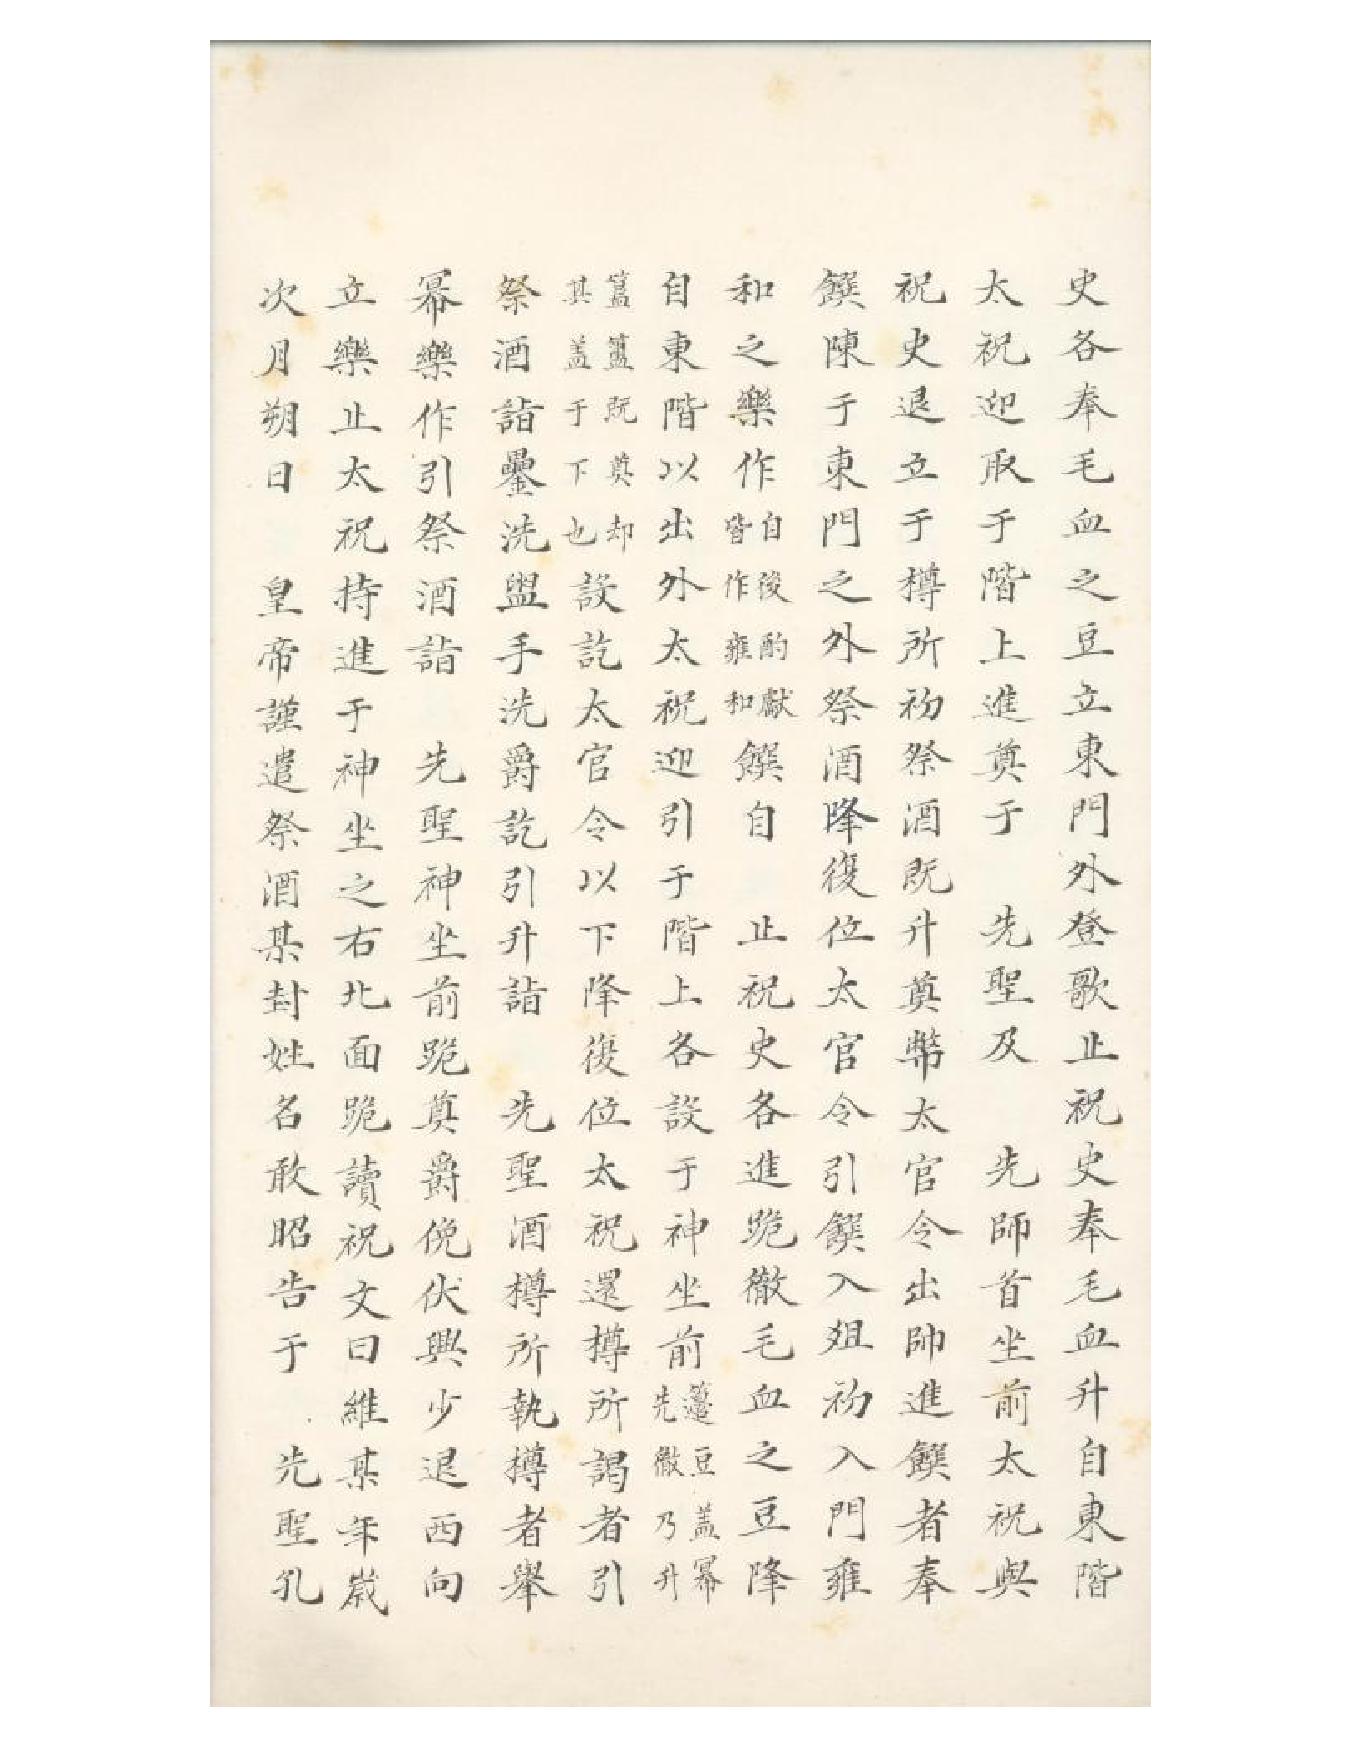 史各奉毛血之豆立東門外登歌止祝史奉毛血升自東階
太祝迎取于階上進奠于　先聖及　先師首坐前太祝與
祝史退立于樽所初祭酒既升奠幣太官令出帥進饌者奉
饌陳于東門之外祭酒降復位太官令引饌入俎初入門雍
和之樂作自後酌獻皆作雍和饌自　止祝史各進跪徹毛血之豆降
自東階以出外太祝迎引于階上各設于神坐前籩豆蓋冪先徹乃升
簠簋既奠却其蓋于下也設訖太官令以下降復位太祝還樽所謁者引
祭酒詣罍洗盥手洗爵訖引升詣　先聖酒樽所執樽者舉
冪樂作引祭酒詣　先聖神坐前跪奠爵俛伏興少退西向
立樂止太祝持進于神坐之右北面跪讀祝文曰維某年歲
次月朔日　皇帝謹遣祭酒某封姓名敢昭告于　先聖孔